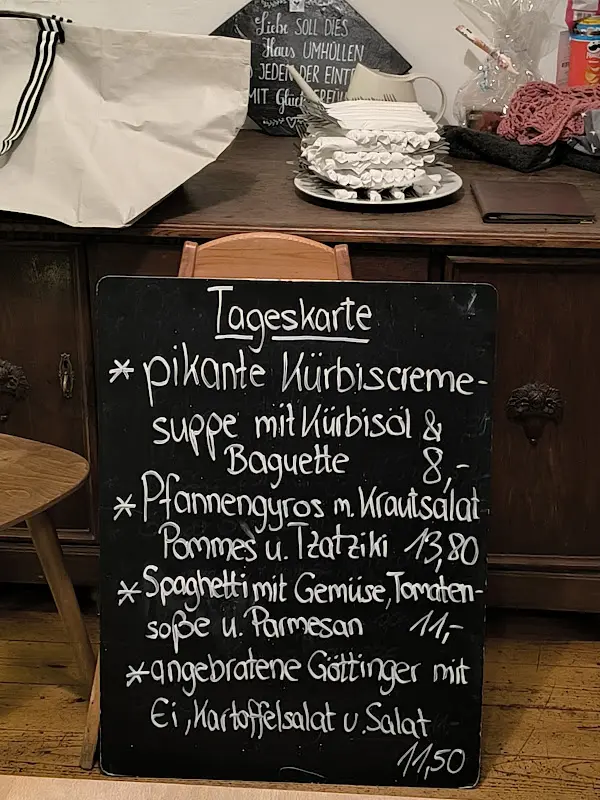 Liebe SOLL DIES
Haus UMHÜLLEN
JEDEN DER EINTR
MIT Glück
Tageskarte
* pikante Kürbiscreme-
suppe mit Kürbisöl &
Baguette 8,-
* Pfannengyros m. Krautsalat
Pommes u. Tzatziki 13,80
* Spaghetti mit Gemüse, Tomaten-
soße u. Parmesan 11,-
* angebratene Göttinger mit
Ei, Kartoffelsalat u. Salat
11,50